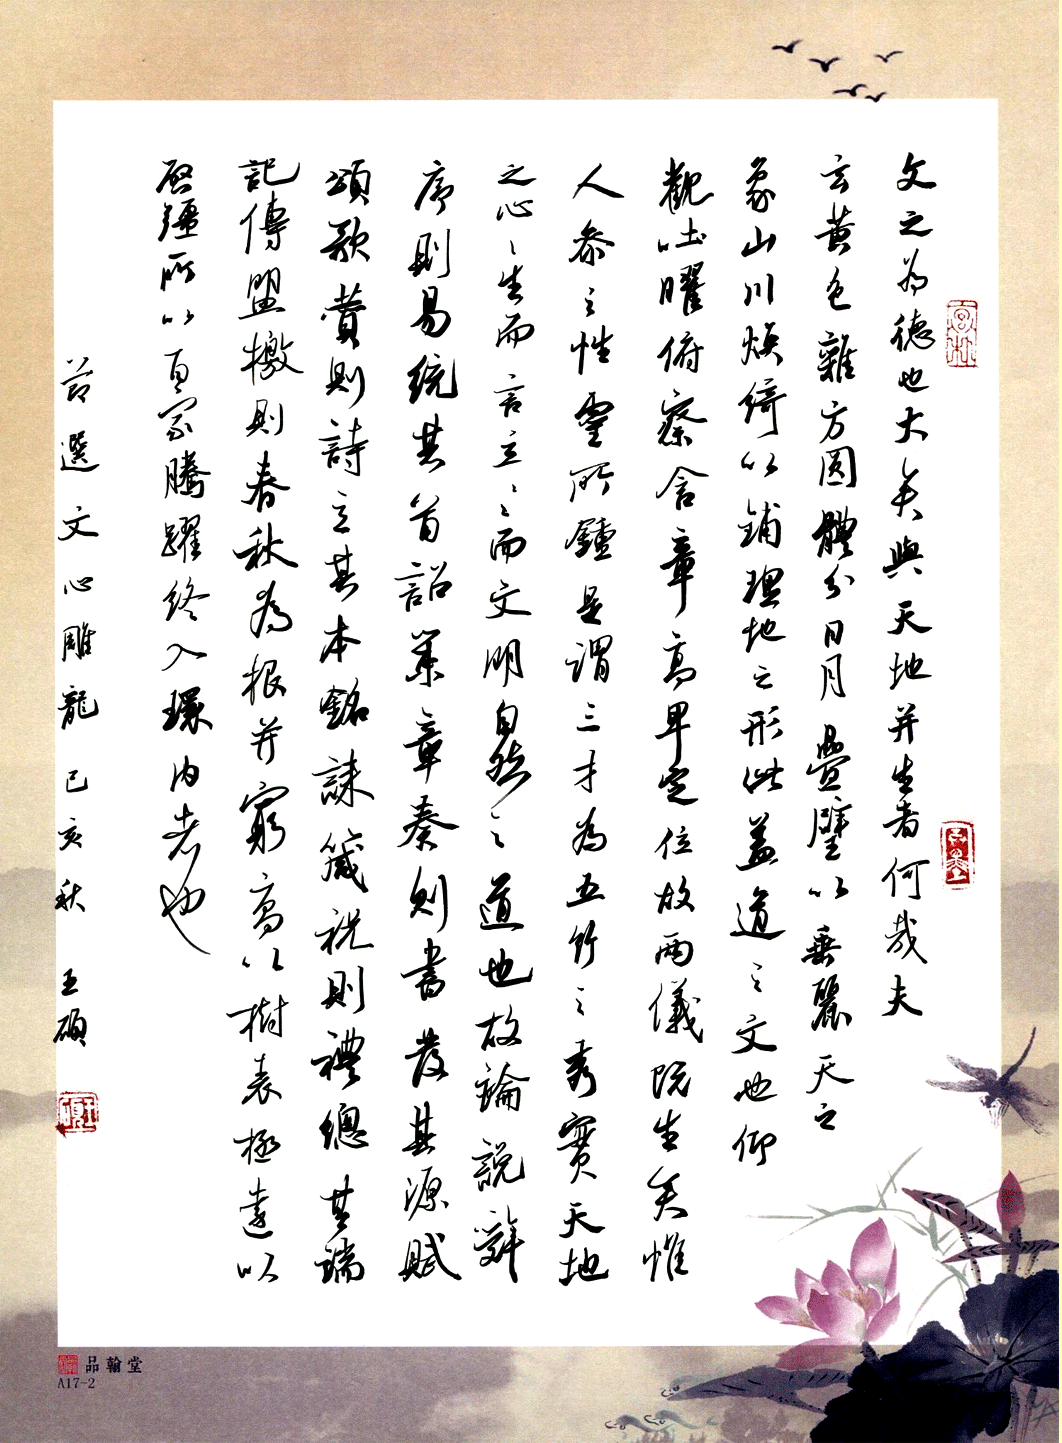 文之為德也大矣與天地并生者何哉夫
玄黃色雜方圓體分日月疊璧以垂麗天之
象山川煥綺以鋪理地之形此蓋道之文也仰
觀吐曜俯察含章高卑定位故兩儀既生矣惟
人參之性靈所鍾是謂三才為五行之秀實天地
之心心生而言立言立而文明自然之道也故論說辭
序則易統其首詔策章奏則書發其源賦
頌歌贊則詩立其本銘誄箴祝則禮總其端
記傳盟檄則春秋為根并窮高以樹表極遠以
啟疆所以百家騰躍終入環內者也
節選文心雕龍 己亥秋 王碩
品翰堂
A17-2